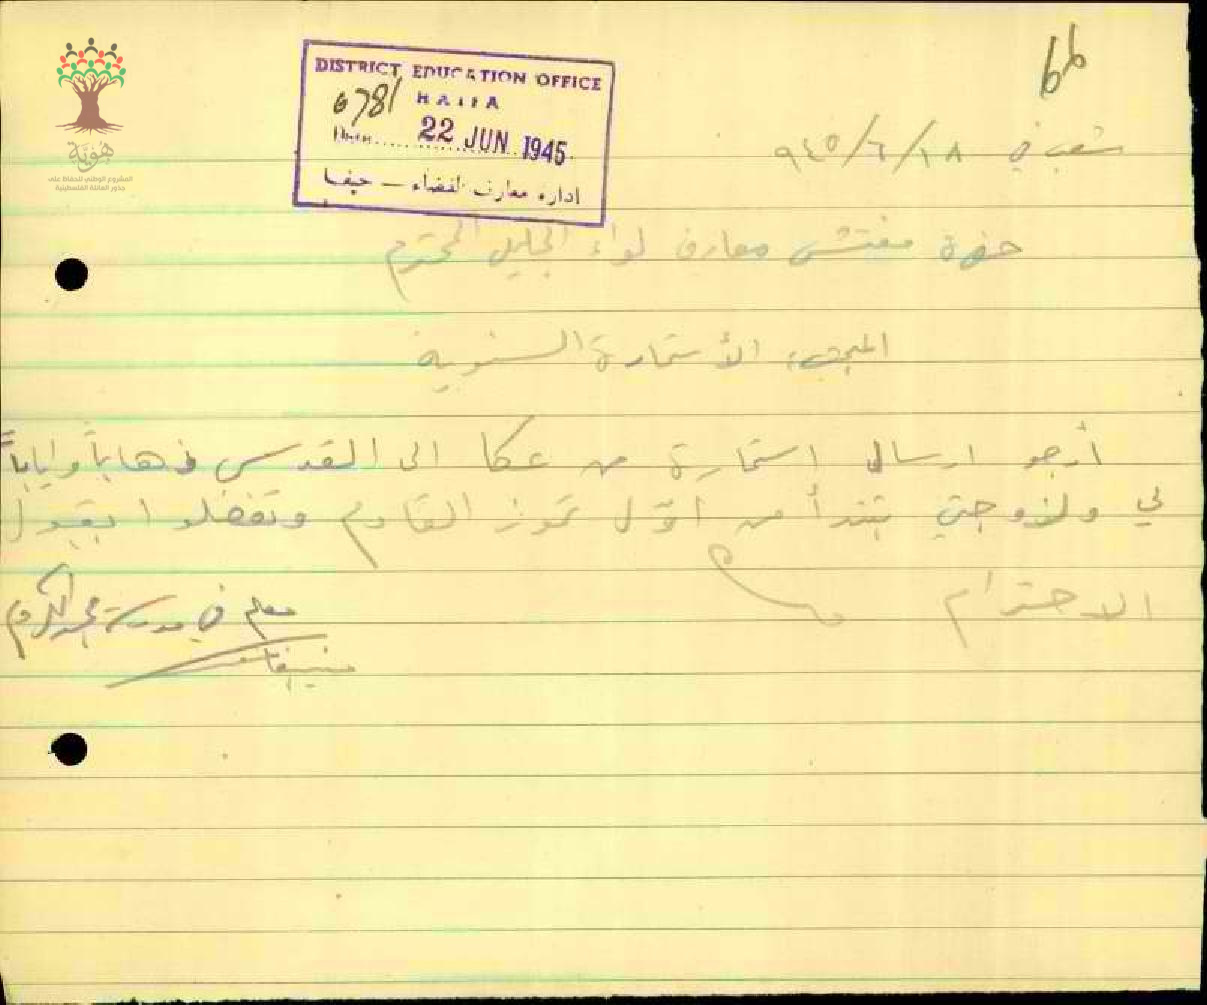 66
DISTRICT EDUCATION OFFICE
HAIFA
6781
Date 22 JUN 1945
ادارة معارف القضاء — حيفا
هوية
المشروع الوطني للحفاظ على
جذور العائلة الفلسطينية
شعب في ١٨/٦/٩٤٥
حضرة مفتش معارف لواء الجليل المحترم
المبحث: الأستمارة السنوية
أرجو ارسال استمارة من عكا الى القدس ذهاباً واياباً
لي ولزوجتي تبتدأ من اوّل تموز القادم وتفضلوا بقبول
الاحترام
معلم في مدرسة